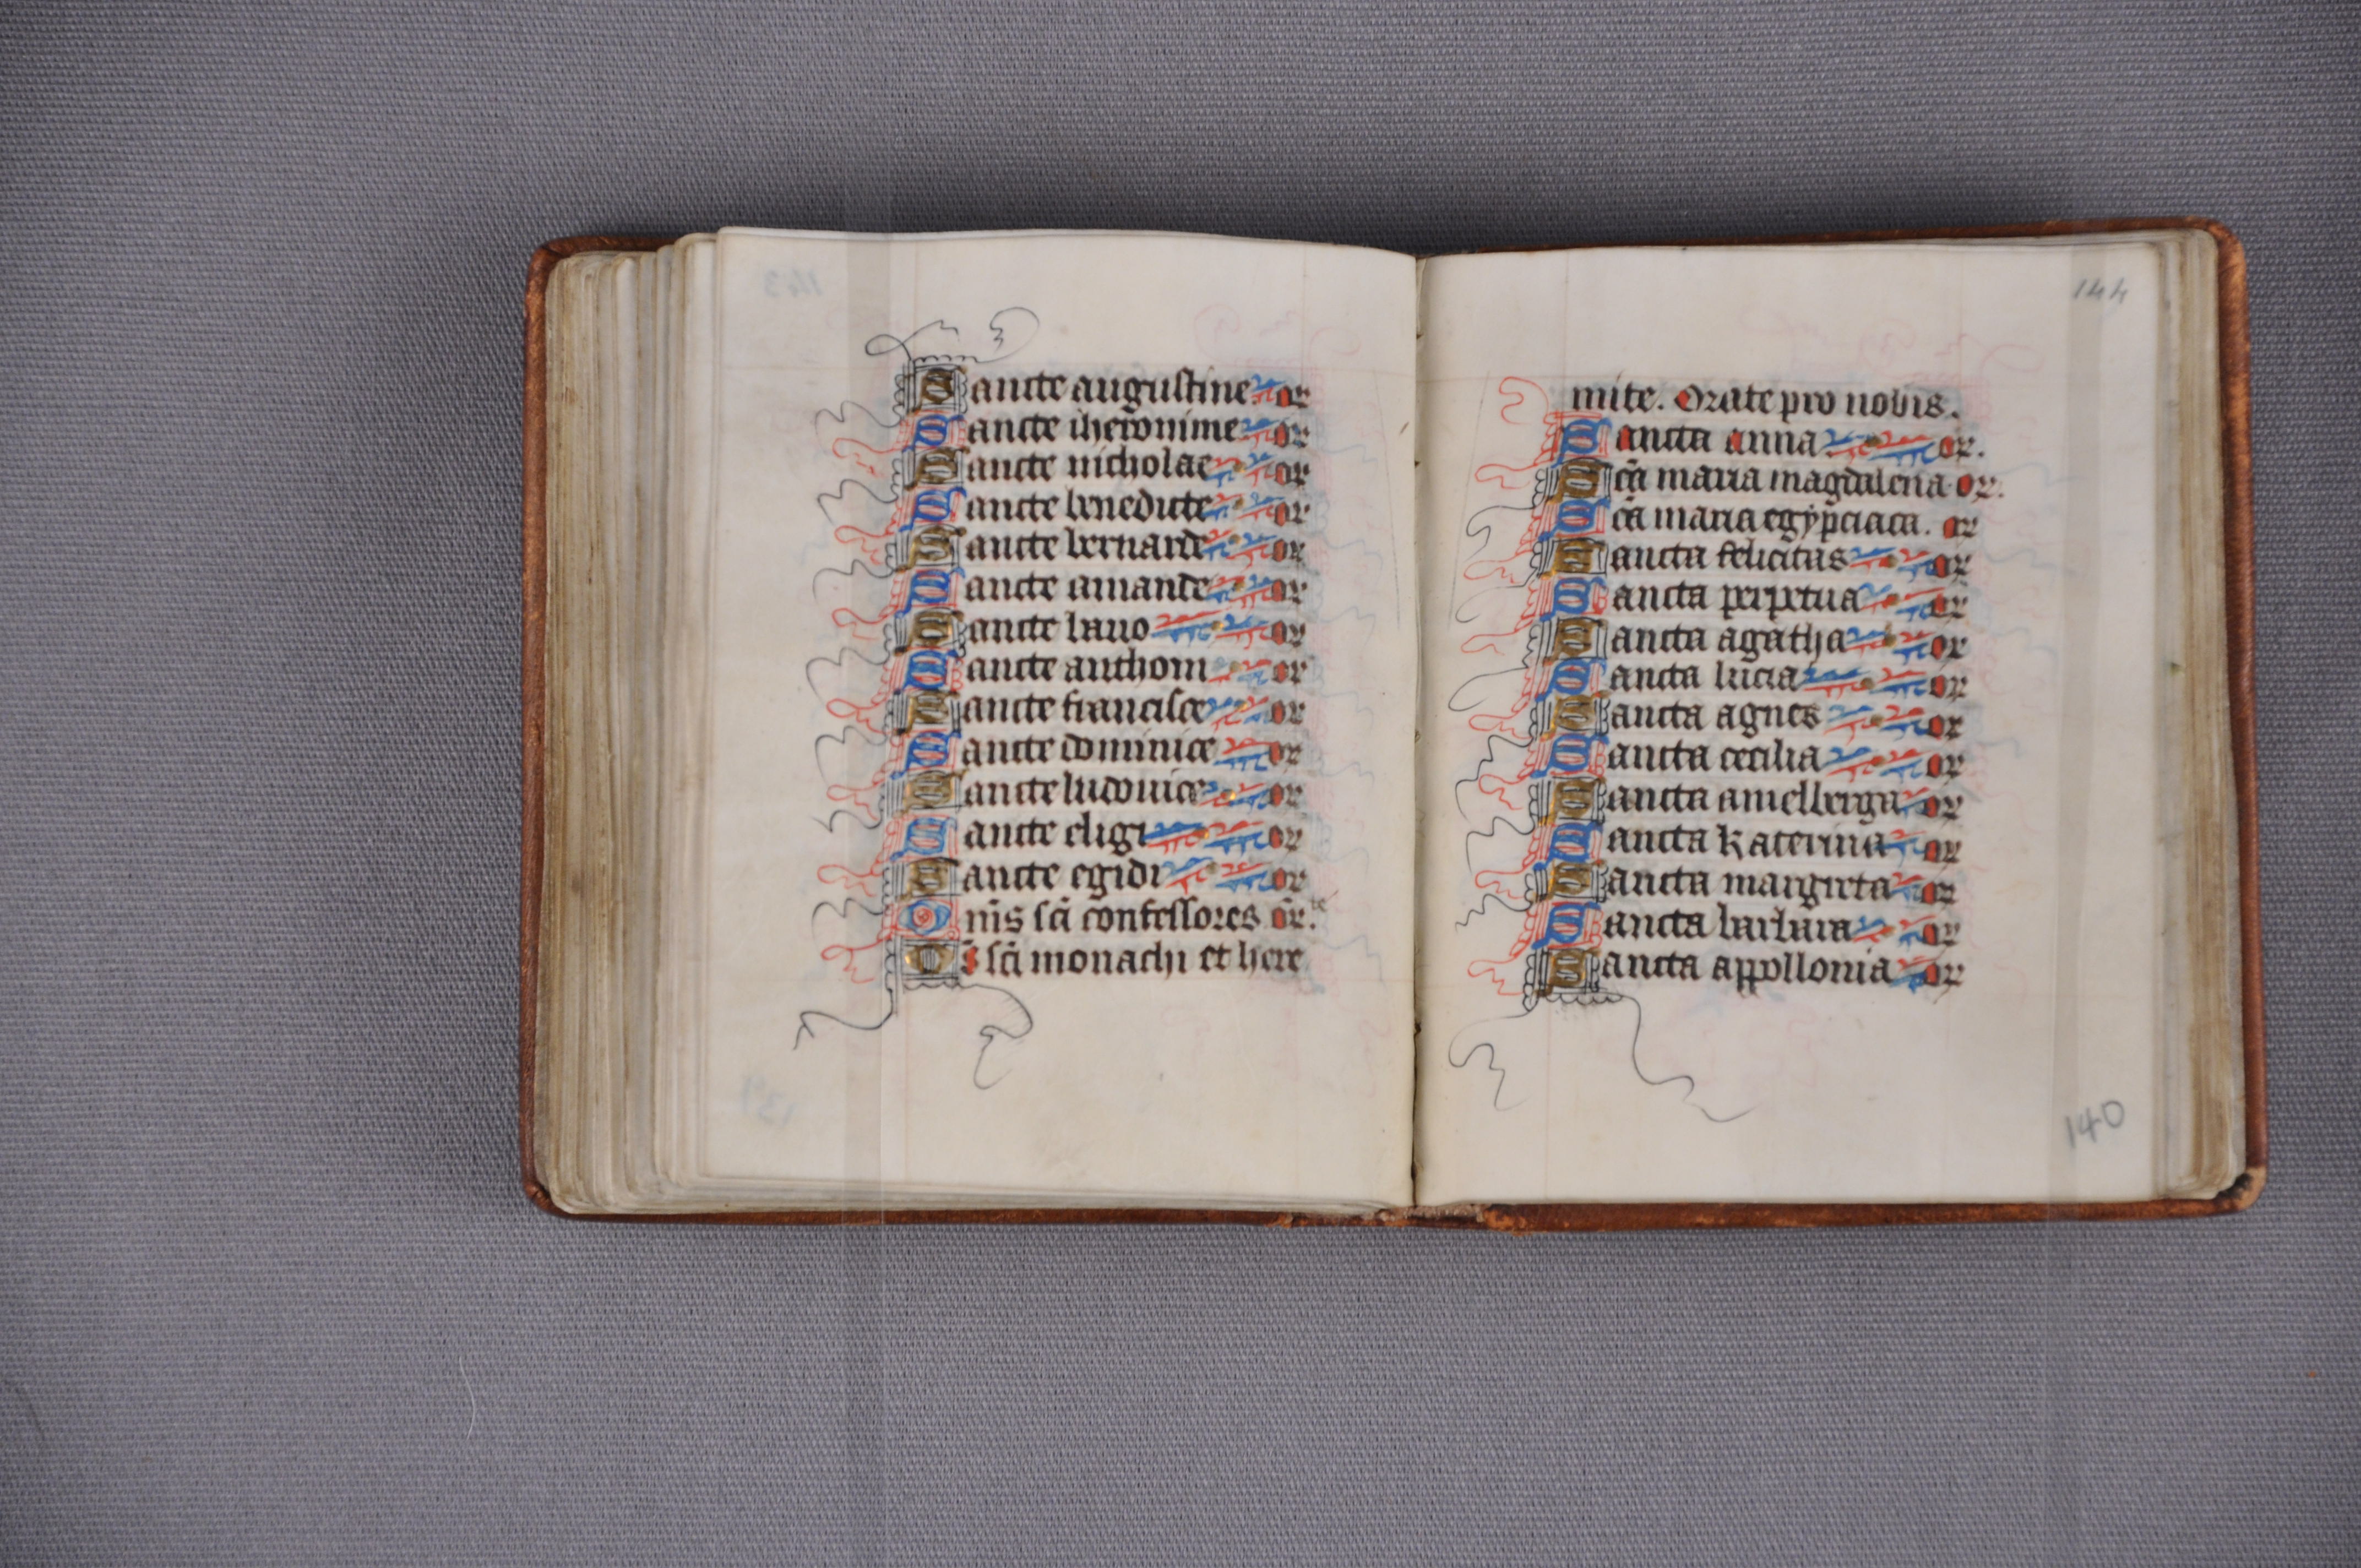 Sancte augustine or
Sancte iheronime or
Sancte nicholae or
Sancte benedicte or
Sancte bernarde or
Sancte amande or
Sancte bauo or
Sancte anthoni or
Sancte francisce or
Sancte dominice or
Sancte ludouice or
Sancte eligi or
Sancte egidi or
Om̄s sc̄i confessores or̄.
O͞s sc̄i monachi et here
144
mite. Orate pro nobis.
Sancta anna or.
Sc̄a maria magdalena or.
Sc̄a maria egypciaca. or
Sancta felicitas or
Sancta perpetua or
Sancta agatha or
Sancta lucia or
Sancta agnes or
Sancta cecilia or
Sancta amelberga or
Sancta Katerina or
Sancta margreta or
Sancta barbara or
Sancta appollonia or
140